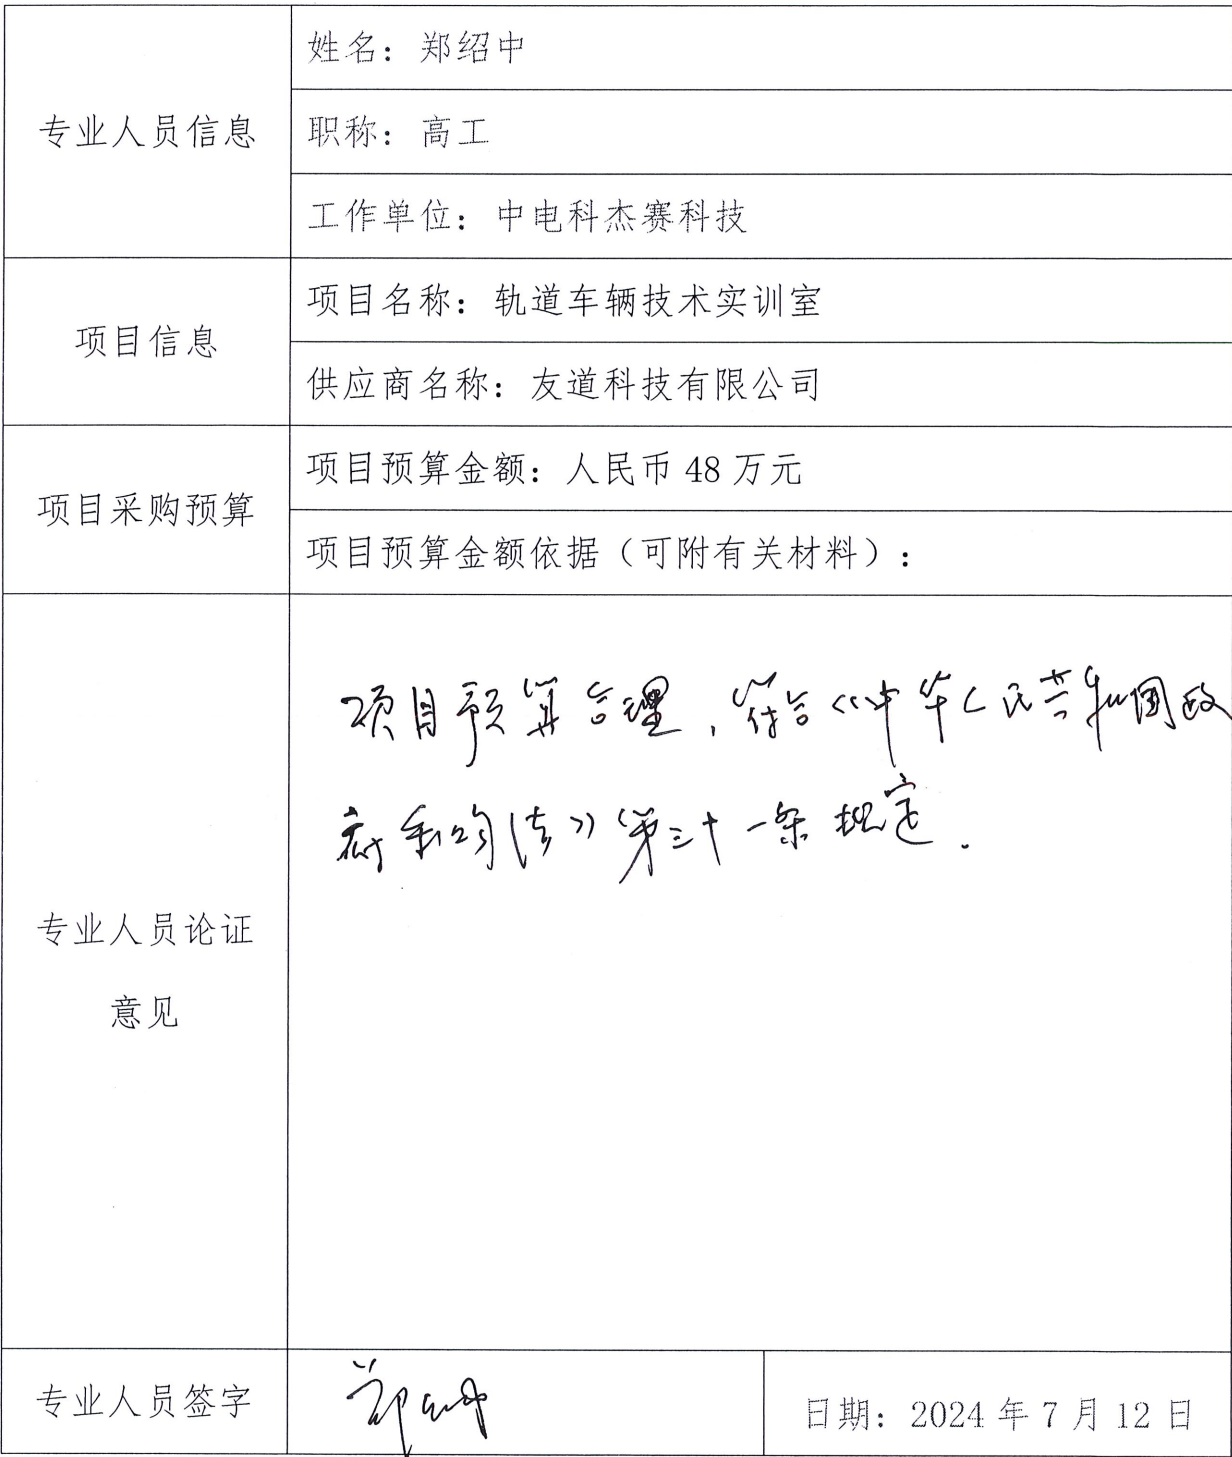 专业人员信息
姓名：郑绍中
职称：高工
工作单位：中电科杰赛科技
项目信息
项目名称：轨道车辆技术实训室
供应商名称：友道科技有限公司
项目采购预算
项目预算金额：人民币 48 万元
项目预算金额依据（可附有关材料）：
专业人员论证
意见
项目预算合理，符合《中华人民共和国政
府采购法》第三十一条规定.
专业人员签字
郑绍中
日期：2024 年 7 月 12 日